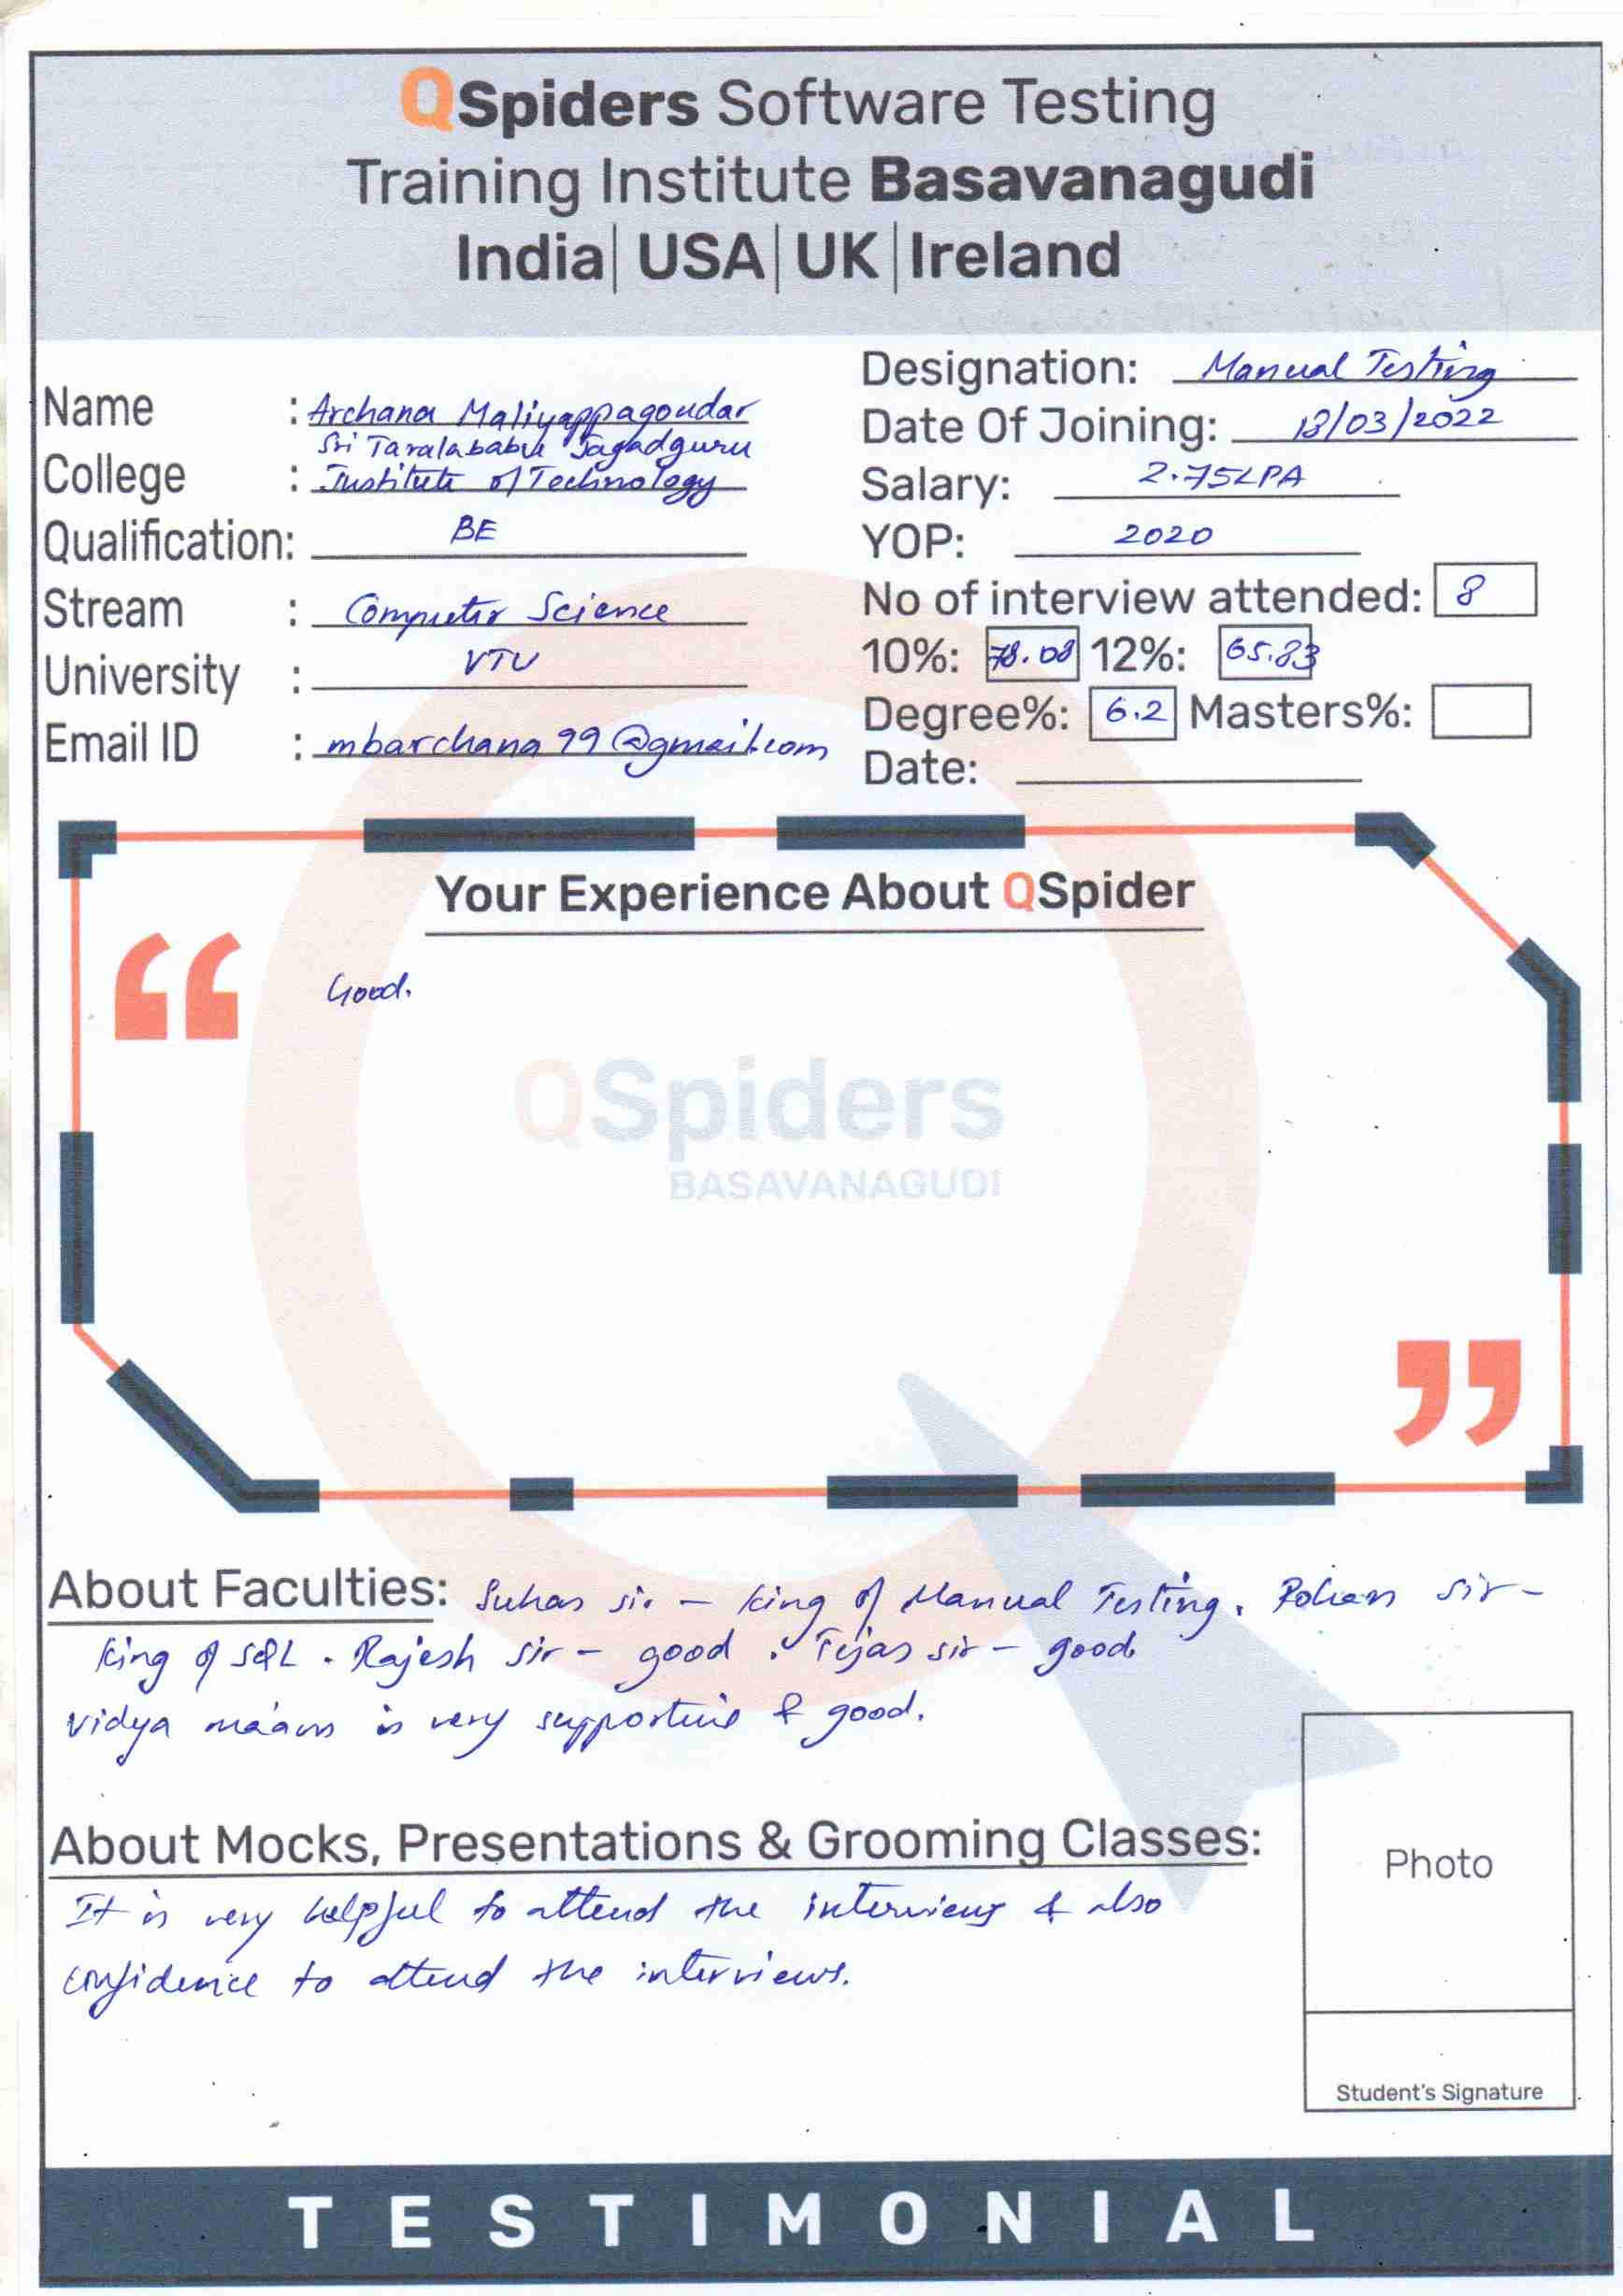 QSpiders Software Testing
Training Institute Basavanagudi
India| USA| UK |Ireland
Name : Archana Maliyappagoudar
College : Sri Taralababu Jagadguru
Institute of Technology
Qualification: BE
Stream : Computer Science
University : VTU
Email ID : mbarchana99@gmail.com
Designation: Manual Testing
Date Of Joining: /03/2022
Salary: 2.75LPA
YOP: 2020
No of interview attended: 8
10%: 78.08 12%: 65.83
Degree%: 6.2 Masters%:
Date:
Your Experience About QSpider
“
Good.
QSpiders
BASAVANAGUDI
”
About Faculties: Suhas sir - king of Manual Testing. Rohan sir -
king of SQL. Rajesh sir - good. Tejas sir - good.
Vidya ma'am is very supportive & good.
About Mocks, Presentations & Grooming Classes:
It is very helpful to attend the interviews & also
confidence to attend the interviews.
Photo
Student's Signature
TESTIMONIAL